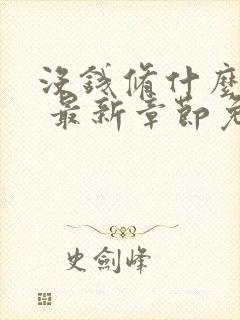 沒錢脩什麼
最新章節免
史劍峰